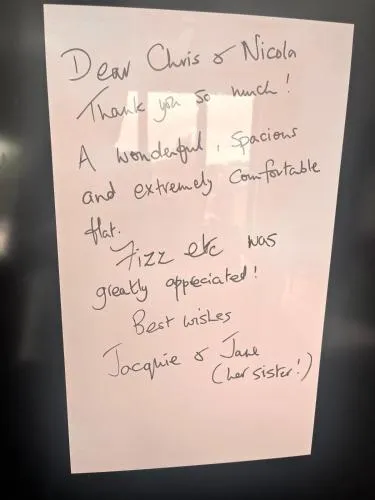 Dear Chris & Nicola
Thank you so much!
A wonderful, spacious
and extremely comfortable
flat.
Fizz etc was
greatly appreciated!
Best wishes
Jacquie & Jane
(her sister!)